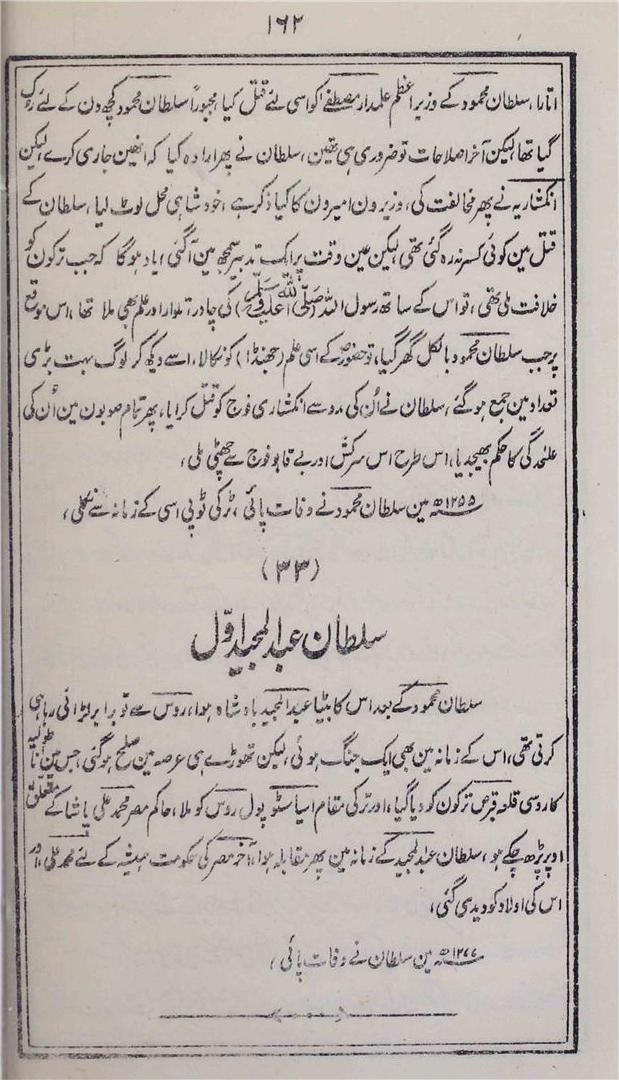 ۱۶۲
اتارا، سلطان محمود کے وزیر اعظم علمدار مصطفےٰ کو اسی لئے قتل کیا، مجبوراً سلطان محمود کچھ دن کے لئے رک
گیا تھا، لیکن آخر اصلاحات تو ضروری ہی تھین، سلطان نے پھر ارادہ کیا کہ انھین جاری کرے، لیکن
انکشاریہ نے پھر مخالفت کی، وزیرون امیرون کا کیا ذکر ہے، خود شاہی محل لوٹ لیا، سلطان کے
قتل مین کوئی کسر نہ رہ گئی تھی، لیکن عین وقت پر ایک تدبیر سمجھ مین آگئی، یاد ہوگا کہ جب ترکون کو
خلافت ملی تھی، تو اس کے ساتھ رسول اللہ (صلی اللہ علیہ وسلم) کی چادر، تلوار اور علم بھی ملا تھا، اس موقع
پر جب سلطان محمود بالکل گھر گیا، تو حضورؐ کے اسی علم (جھنڈا) کو نکالا، اسے دیکھ کر لوگ بہت بڑی
تعداد مین جمع ہو گئے، سلطان نے اُن کی مدد سے انکشاری فوج کو قتل کرایا، پھر تمام صوبون مین اُن کی
علٰحدگی کا حکم بھیجدیا، اس طرح اس سرکش اور بے قابو فوج سے چھٹی ملی،
۱۲۵۵ھ مین سلطان محمود نے وفات پائی، ٹرکی ٹوپی اسی کے زمانہ سے نکلی،
(۳۳)
سلطان عبد المجید اوّل
سلطان محمود کے بعد اس کا بیٹا عبد المجید بادشاہ ہوا، روس سے تو برابر لڑائی رہا ہی
کرتی تھی، اس کے زمانہ مین بھی ایک جنگ ہوئی، لیکن تھوڑے ہی عرصہ مین صلح ہو گئی، جس مین اناطولیہ
کا روسی قلعہ قرص ترکون کو دیا گیا، اور ترکی مقام اسپاسٹوپول روس کو ملا، حاکم مصر محمد علی پاشا کے متعلق
اوپر پڑھ چکے ہو، سلطان عبد المجید کے زمانہ مین پھر مقابلہ ہوا، آخر مصر کی حکومت ہمیشہ کے لئے محمد علی، اور
اس کی اولاد کو دیدی گئی،
۱۲۷۷ھ مین سلطان نے وفات پائی،